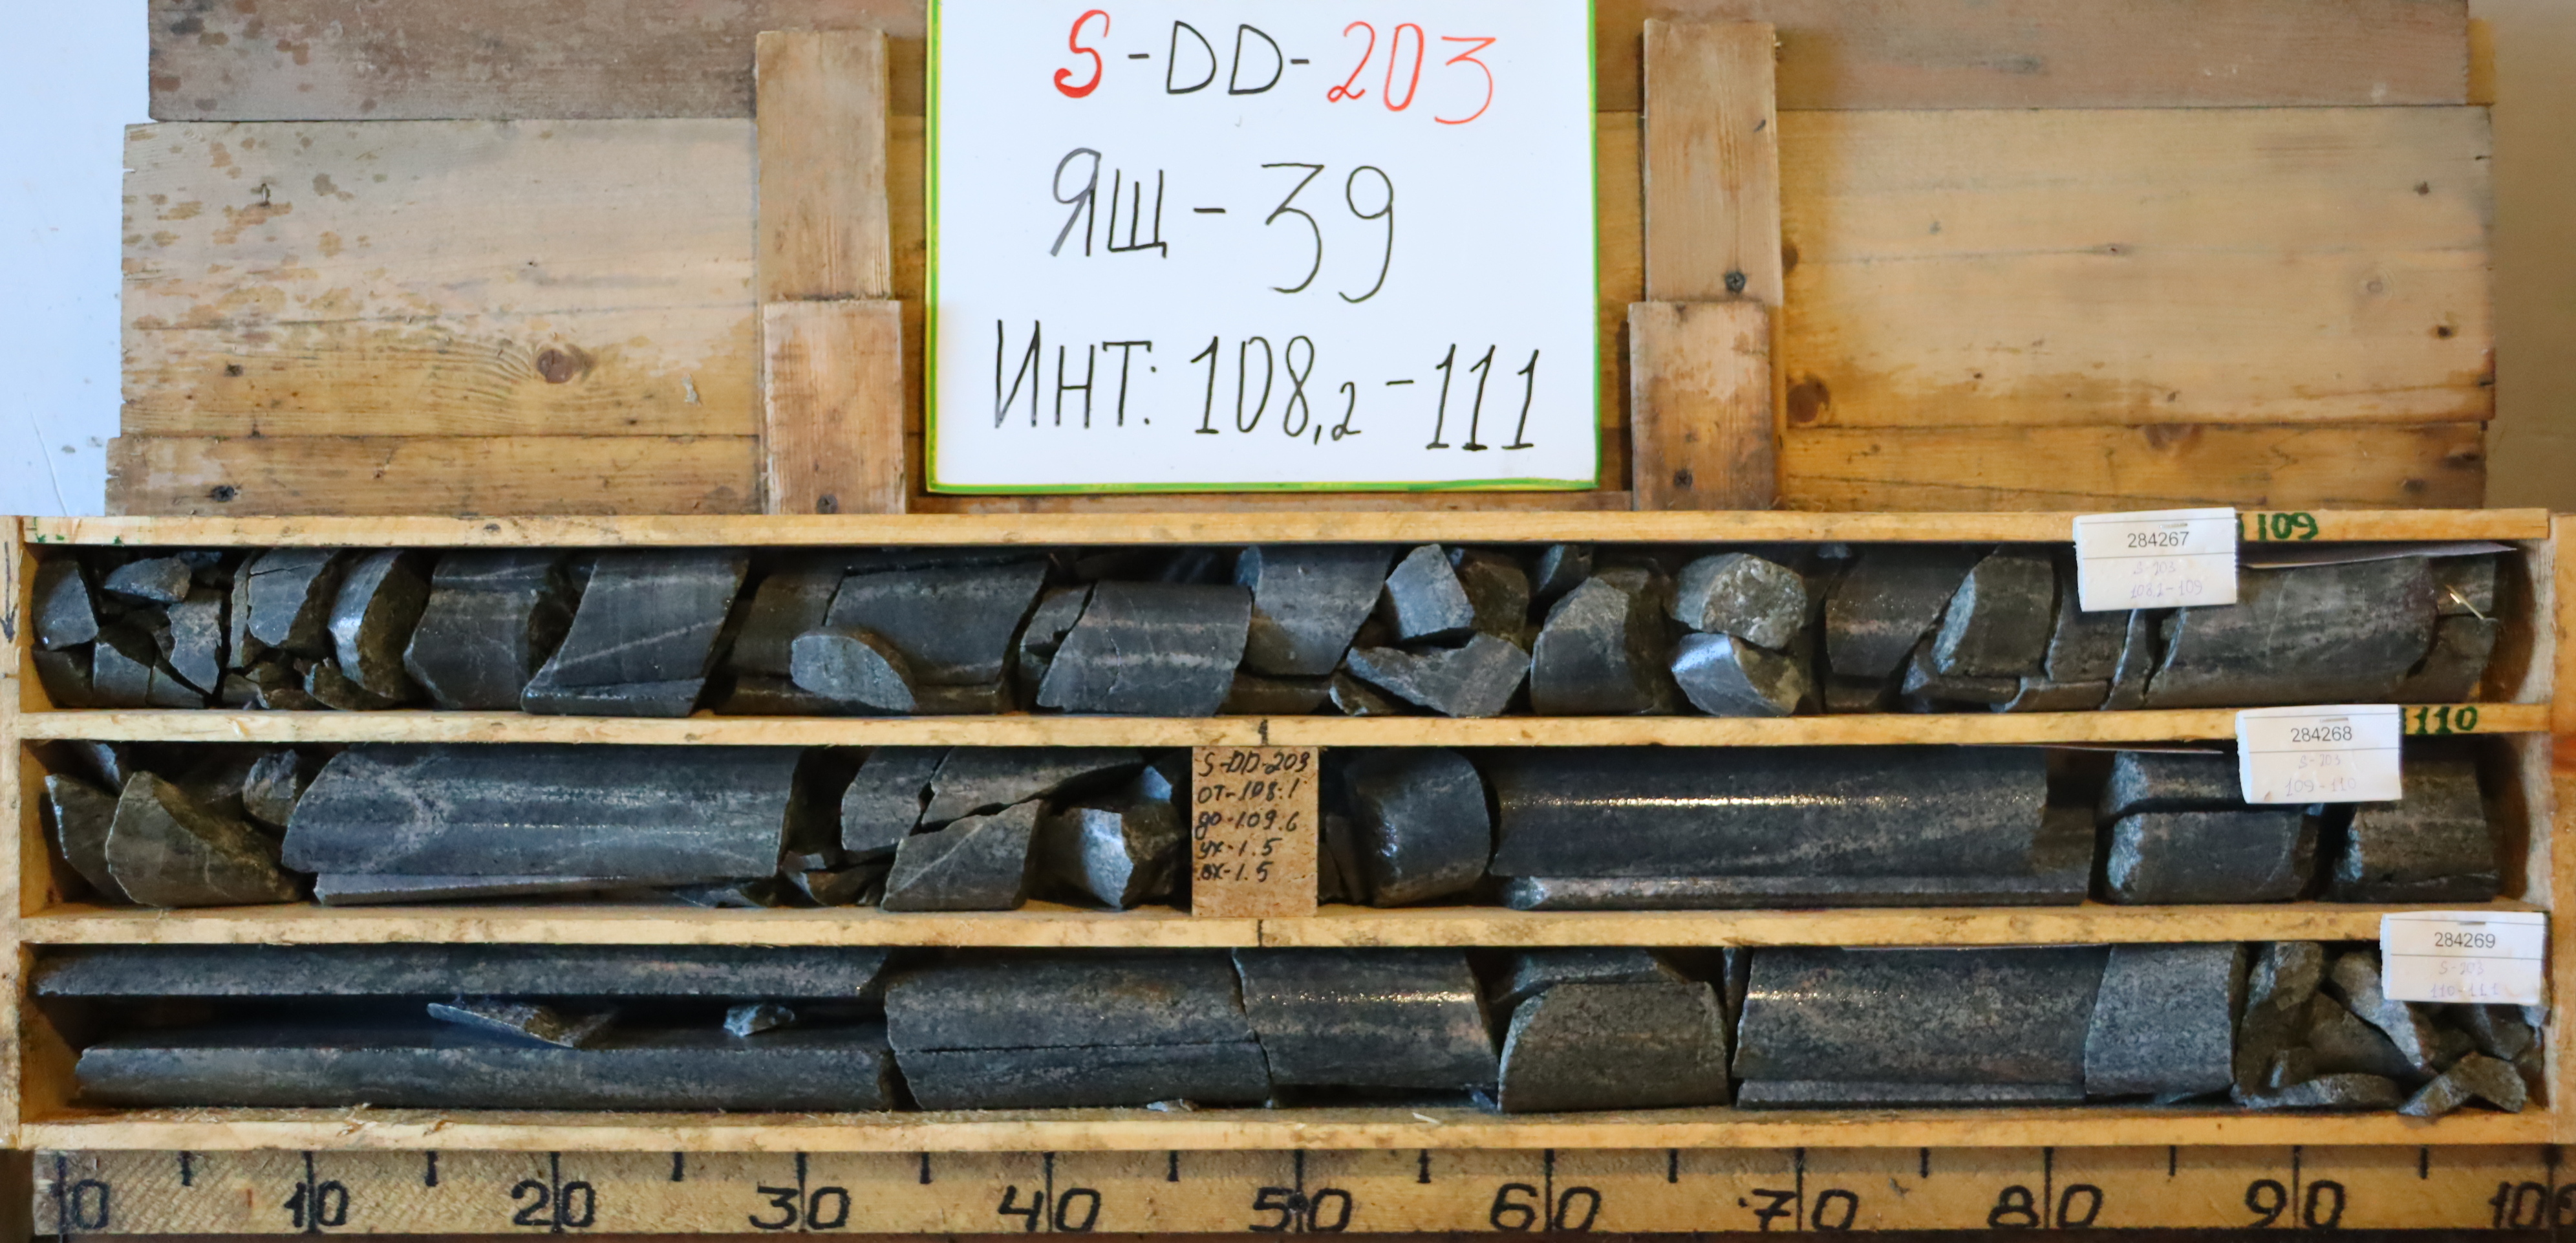 S-DD-203
ЯЩ-39
ИНТ: 108,2-111
109
284267
S-203
108,2-109
110
284268
S-203
109-110
S-DD-203
от-108.1
до-109.6
ух-1.5
вх-1.5
284269
S-203
110-111
0 10 20 30 40 50 60 70 80 90 100